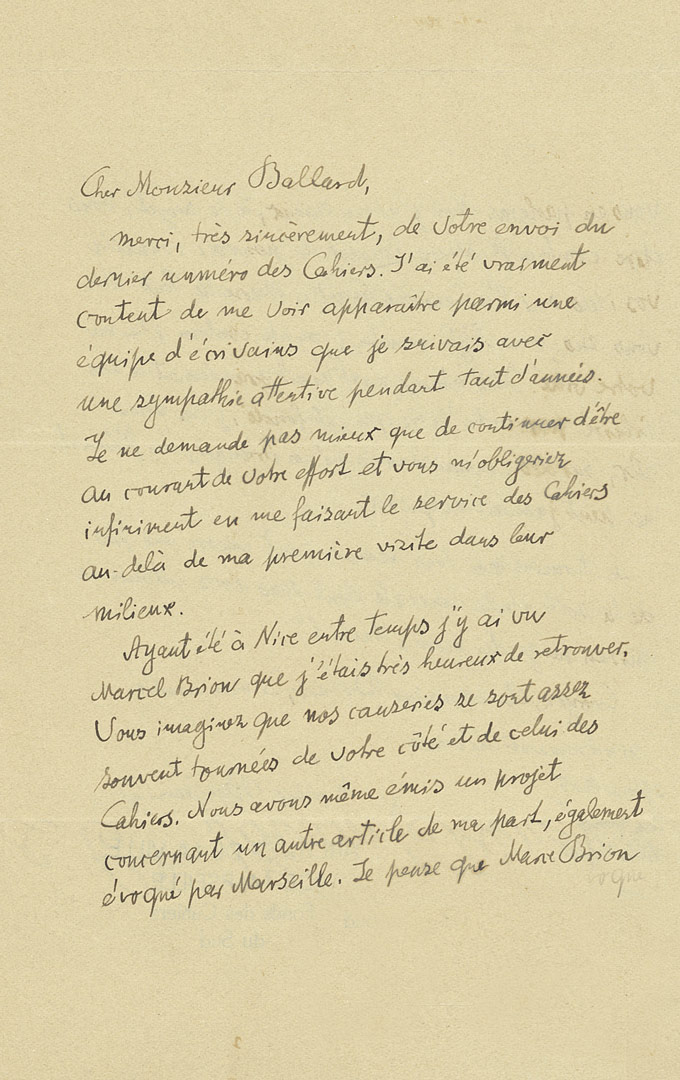 Cher Monsieur Ballard,
merci, très sincèrement, de votre envoi du
dernier numéro des Cahiers. J'ai été vraiment
content de me voir apparaître parmi une
équipe d'écrivains que je suivais avec
une sympathie attentive pendant tant d'années.
Je ne demande pas mieux que de continuer d'être
au courant de votre effort et vous m'obligeriez
infiniment en me faisant le service des Cahiers
au-delà de ma première visite dans leur
milieux.
Ayant été à Nice entre temps j'y ai vu
Marcel Brion que j'étais très heureux de retrouver.
Vous imaginez que nos causeries se sont assez
souvent tournées de votre côté et de celui des
Cahiers. Nous avons même émis un projet
concernant un autre article de ma part, également
évoqué par Marseille. Je pense que Marcel Brion